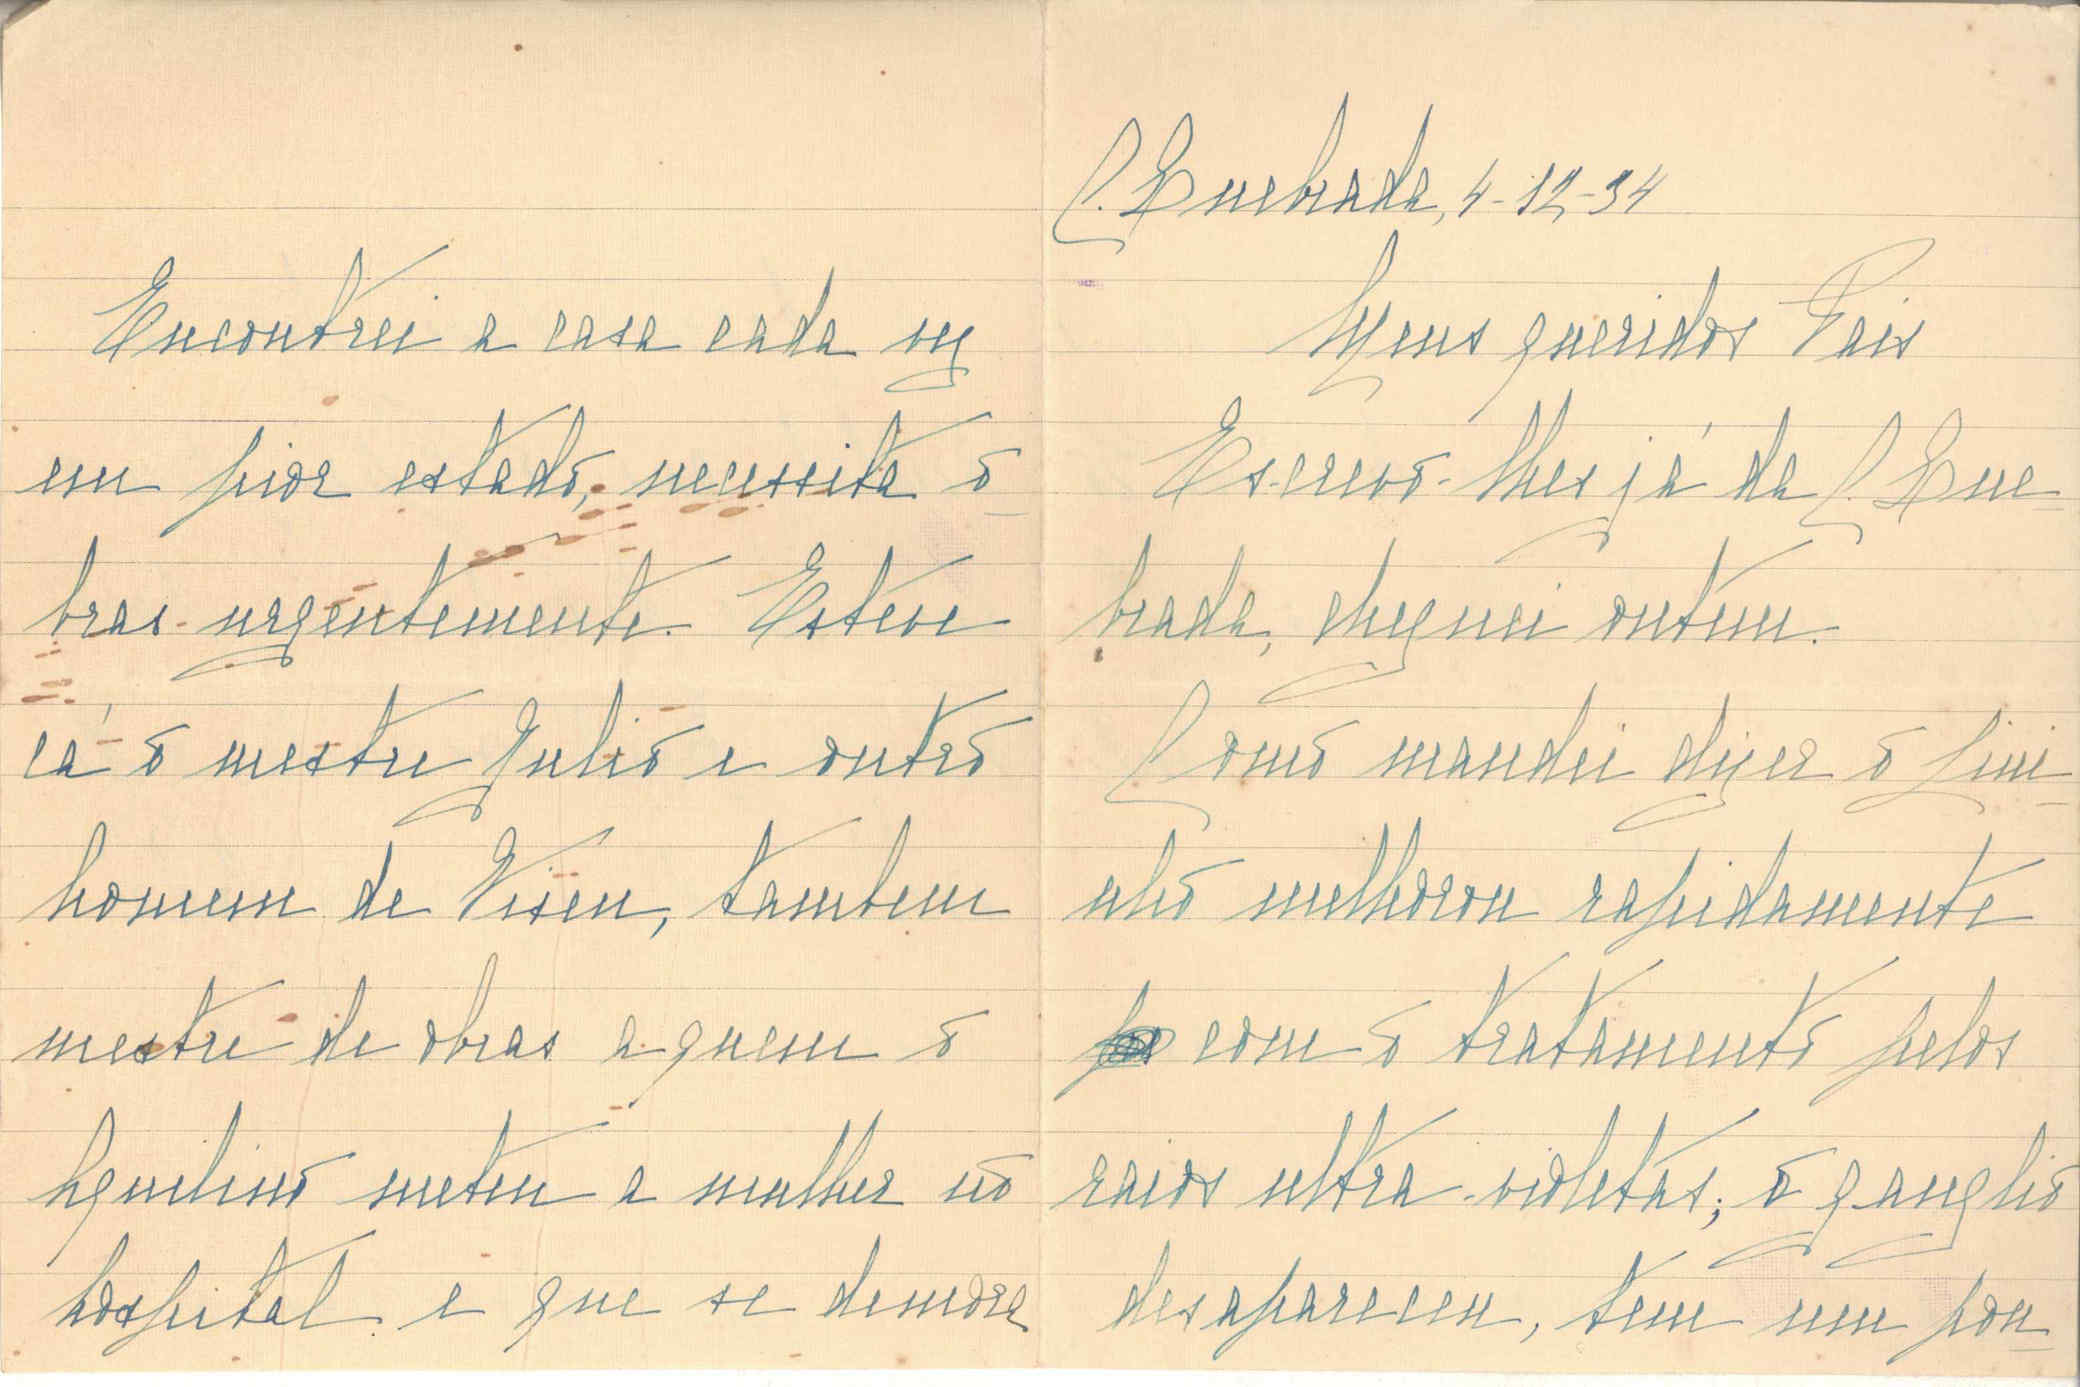 C. Quebrada, 4-12-34
Meus queridos Pais
Escrevo-lhes já da C. Que-
brada, cheguei ontem.
Como mandei dizer o
nho melhorou rapidamente
com o tratamento pelos
raios ultra-violetas; o ganglio
desapareceu, tem um pou-
Encontrei a casa cada vez
em pior estado, necessita o-
bras urgentemente. Esteve
cá o mestre Julio e outro
homem de Viseu, tambem
mestre de obras a quem o
Aquilino meteu a mulher no
hospital e que se demora